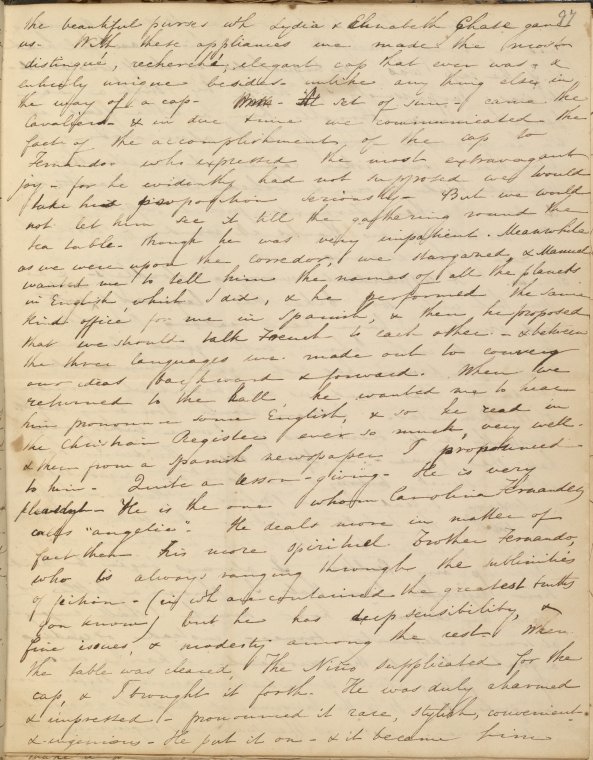 97
the beautiful purses wh Lydia & Elizabeth Chase gave
us. With these appliances we made the most
distingué, recherché, elegant cap that ever was, &
entirely unique besides - unlike any thing else in
the way of a cap. At set of sun - came the
Cavaliers - & in due time we communicated the
fact of the accomplishment of the cap to
Fernando - who expressed the most extravagant
joy - for he evidently had not supposed we would
take his proposition seriously - But we would
not let him see it till the gathering round the
tea table - though he was very impatient. Meanwhile
as we were upon the corredor, we stargazed, & Manuel
wanted me to tell him the names of all the planets
in English, which I did, & he performed the same
kind office for me in Spanish, & then he proposed
that we should talk French to each other - & between
the three languages we made out to convey
our ideas backward & forward. When we
returned to the hall, he wanted me to hear
him pronounce some English, & so he read in
the Christian Register ever so much, very well -
& then from a Spanish newspaper I pronounced
to him - Quite a lesson-giving - He is very
- He is the one whom Carolina Fernandez
calls "angelic". He deals more in matter of
fact than his more spirituel brother Fernando,
who is always ranging through the sublimities
of fiction - (in wh are contained the greatest truths
you know) but he has deep sensibility, &
fine issues, & modesty among the rest. When
the table was cleared, The Nino supplicated for the
cap, & I brought it forth. He was duly charmed
& impressed - pronounced it rare, stylish, convenient
& ingenious - He put it on - & it became him